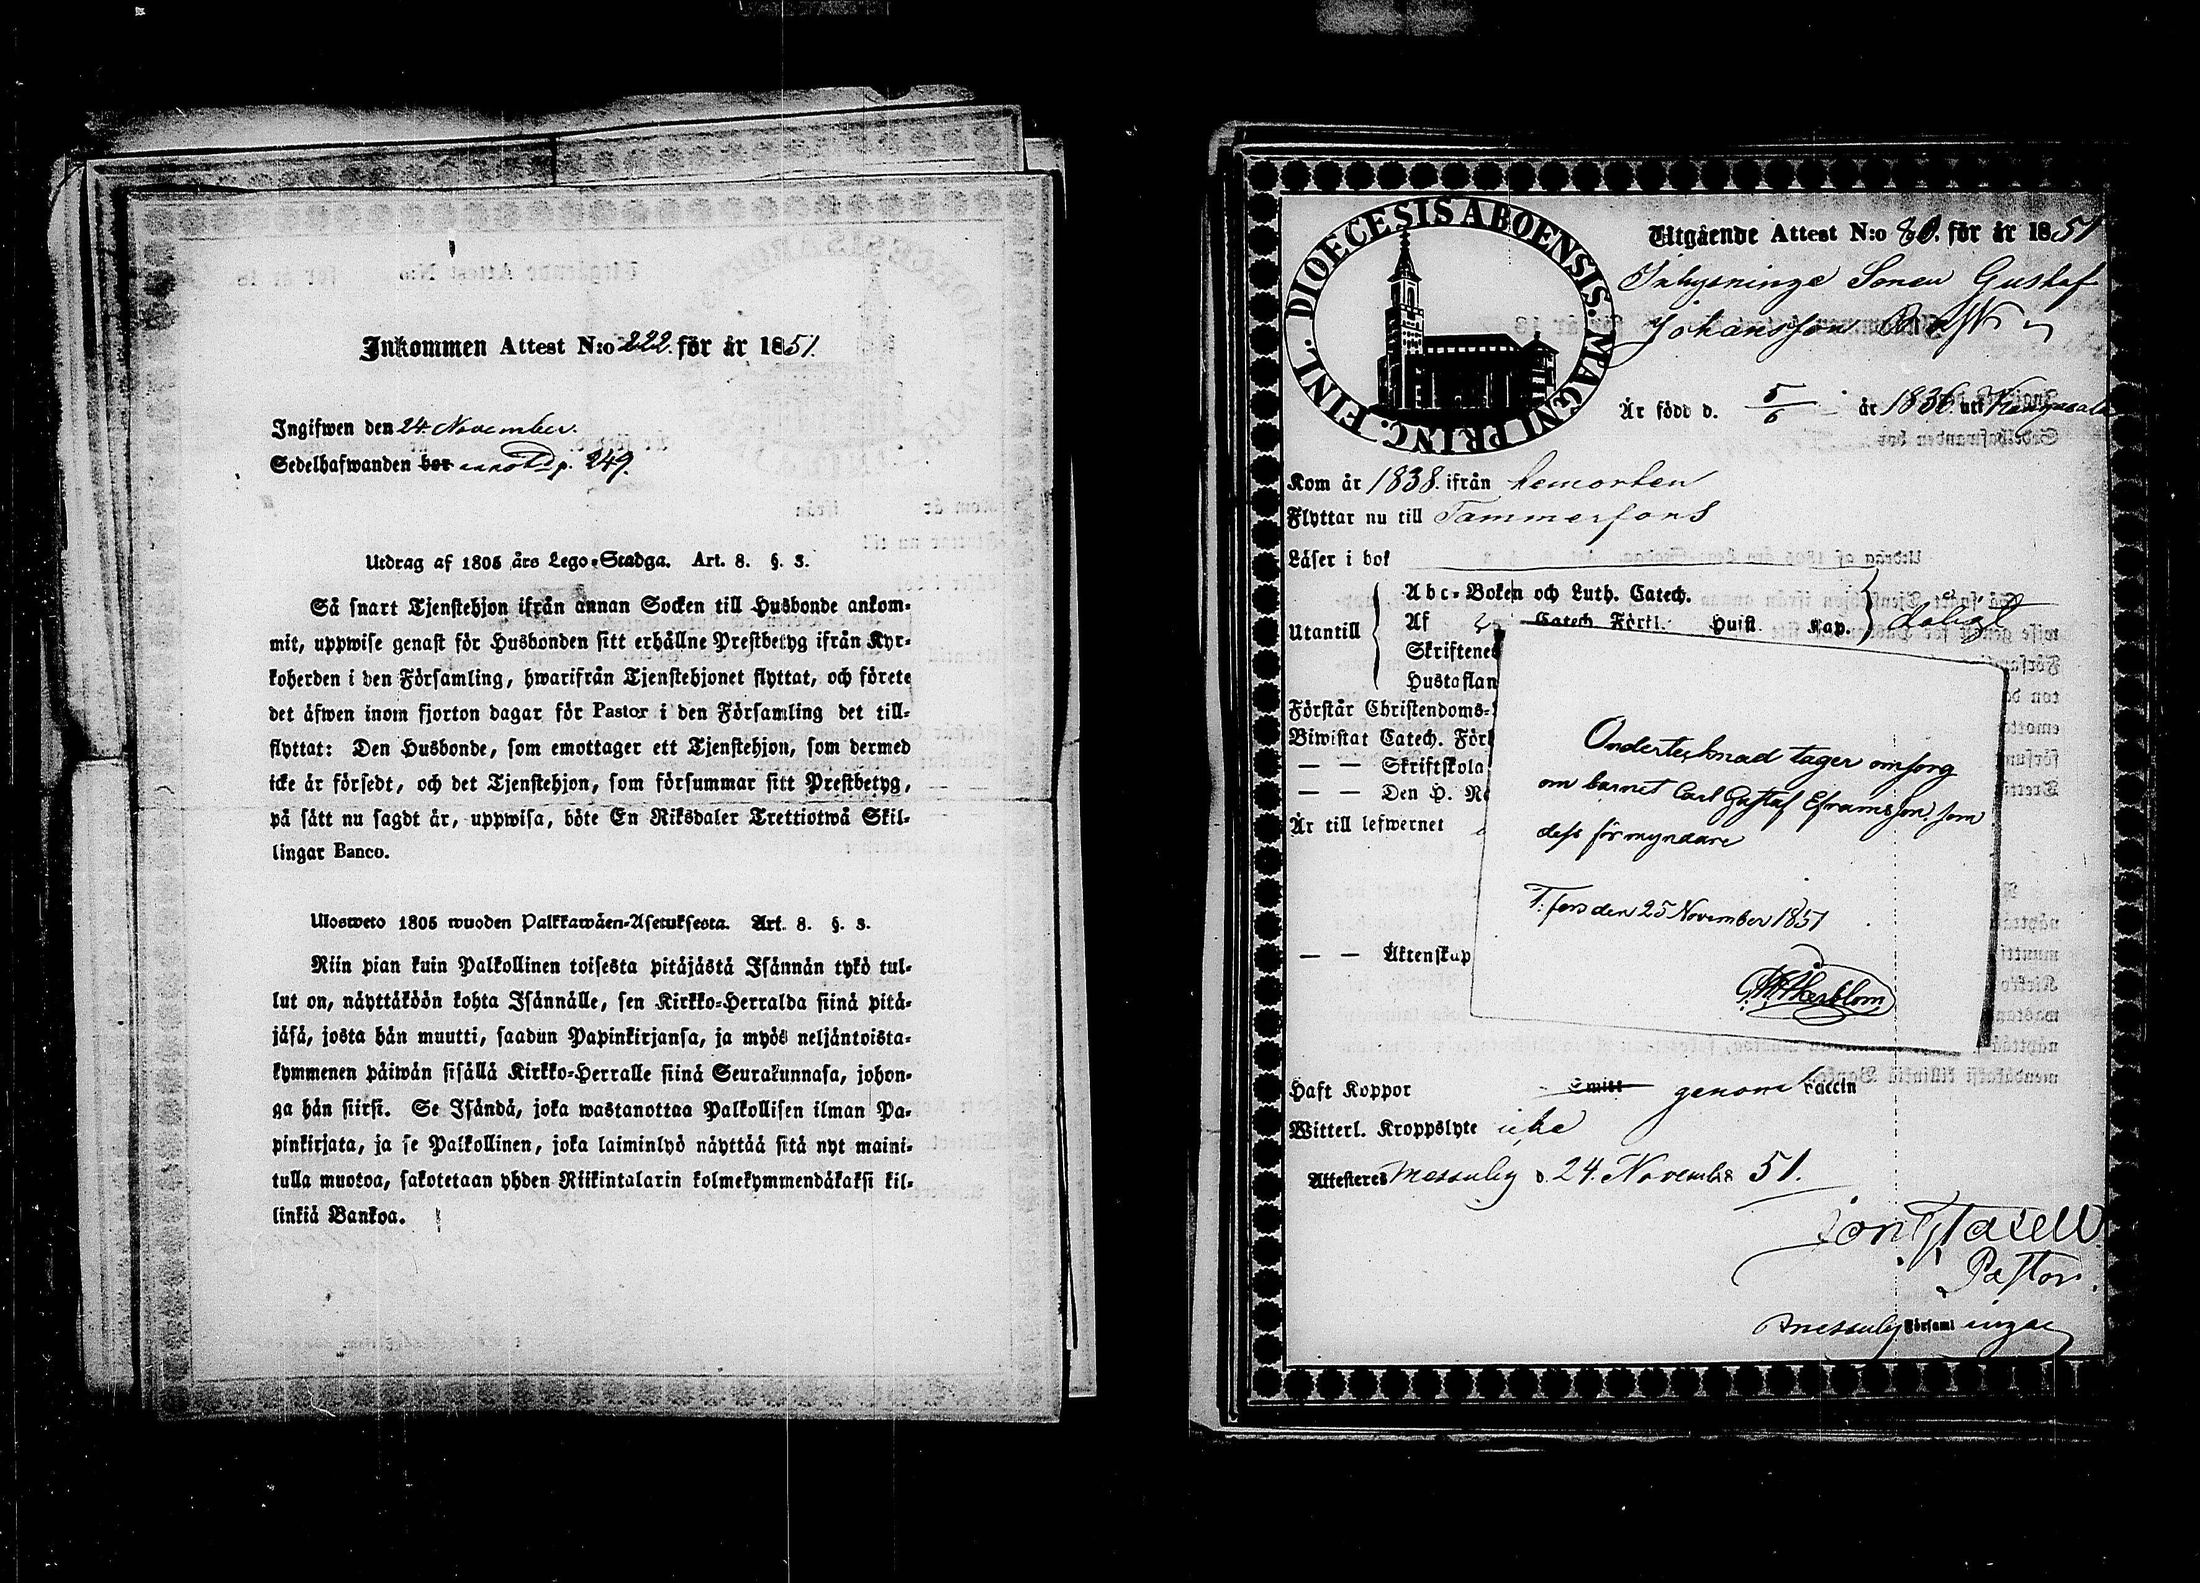 Inkommen Attest N:o 222. för år 1851.
Ingifwen den 24. November.
Sedelhafwanden bor p. 249.
Utdrag af 1805 års Lego-Stadga. Art. 8. §. 3.
Så snart Tjenstehjon ifrån annan Socken till Husbonde ankom-
mit, uppwise genast för Husbonden sitt erhållne Prestbetyg ifrån Kyr-
koherden i den Församling, hwarifrån Tjenstehjonet flyttat, och förete
det äfwen inom fjorton dagar för Pastor i den Församling det till-
flyttat: Den Husbonde, som emottager ett Tjenstehjon, som dermed
icke är försedt, och det Tjenstehjon, som försummar sitt Prestbetyg,
på sätt nu sagdt är, uppwisa, böte En Riksdaler Trettiotwå Skil-
lingar Banco.
Ulosweto 1805 wuoden Palkkawäen-Asetuksesta. Art. 8. §. 3.
Niin pian kuin Palkollinen toisesta pitäjästä Isännän tykö tul-
lut on, näyttäköön kohta Isännälle, sen Kirkko-Herralda siinä pitä-
jäsä, josta hän muutti, saadun Papinkirjansa, ja myös neljäntoista-
kymmenen päiwän sisällä Kirkko-Herralle siinä Seurakunnasa, johon-
ga hän siirsi. Se Isändä, joka wastanottaa Palkollisen ilman Pa-
pinkirjata, ja se Palkollinen, joka laiminlyö näyttää sitä nyt maini-
tulla muotoa, sakotetaan yhden Riikintalarin kolmekymmendäkaksi kil-
linkiä Bankoa.
DIOECESIS ABOENSIS. MAGNI PRINC. FINL.
Utgående Attest N:o 80. för år 1851
Inhysninge Sonen Gustaf
Johansson
Är född d. 5/6 år 1836. uti Kangasala
Kom år 1838. ifrån hemorten
Flyttar nu till Tammerfors
Läser i bok
Utantill
Abc-Boken och Luth. Catech.
Af Catech. Förkl. Hust. Kap.
Skriftene
Hustaflan
dåligt
Förstår Christendoms-
Biwistat Catech. Förk
— — Skriftskola
— — Den H. N
Är till lefwernet
— — Äktenskap
Undertecknad tager omsorg
om barnet Carl Gustaf Eframsson, som
dess förmyndare
T:fors den 25 November 1851
G. W. Åkerblom
Haft Koppor Smitt genom Vaccin
Witterl. Kroppslyte icke
Attesteres Messuby d. 24. November 51.
Pastor.
Messuby Församl ingar